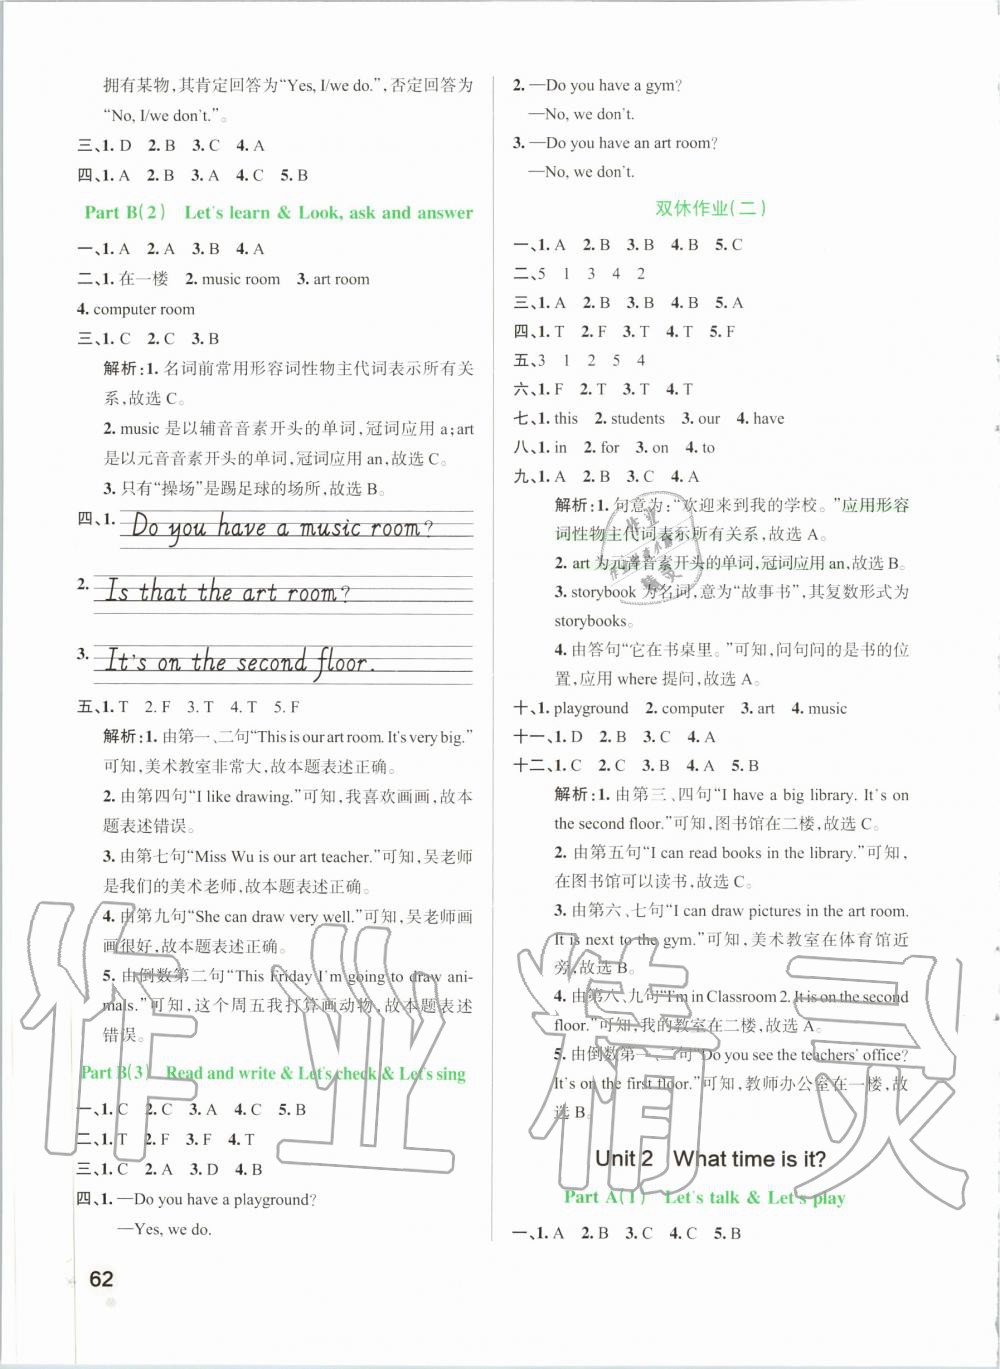 拥有某物,其肯定回答为“Yes, I/we do.”,否定回答为
“No, I/we don't.”。
三、1. D 2. B 3. C 4. A
四、1. A 2. B 3. A 4. C 5. B
Part B(2) Let's learn & Look, ask and answer
一、1. A 2. A 3. B 4. A
二、1. 在一楼 2. music room 3. art room
4. computer room
三、1. C 2. C 3. B
解析:1. 名词前常用形容词性物主代词表示所有关
系,故选 C。
2. music 是以辅音音素开头的单词,冠词应用 a;art
是以元音音素开头的单词,冠词应用 an,故选 C。
3. 只有“操场”是踢足球的场所,故选 B。
四、1. Do you have a music room?
2. Is that the art room?
3. It's on the second floor.
五、1. T 2. F 3. T 4. T 5. F
解析:1. 由第一、二句“This is our art room. It's very big.”
可知,美术教室非常大,故本题表述正确。
2. 由第四句“I like drawing.”可知,我喜欢画画,故本
题表述错误。
3. 由第七句“Miss Wu is our art teacher.”可知,吴老师
是我们的美术老师,故本题表述正确。
4. 由第九句“She can draw very well.”可知,吴老师画
画很好,故本题表述正确。
5. 由倒数第二句“This Friday I'm going to draw ani-
mals.”可知,这个周五我打算画动物,故本题表述
错误。
Part B(3) Read and write & Let's check & Let's sing
一、1. C 2. C 3. A 4. C 5. B
二、1. T 2. F 3. F 4. T
三、1. C 2. A 3. D 4. B
四、1. —Do you have a playground?
—Yes, we do.
62
2. —Do you have a gym?
—No, we don't.
3. —Do you have an art room?
—No, we don't.
双休作业(二)
一、1. A 2. B 3. B 4. B 5. C
二、5 1 3 4 2
三、1. A 2. B 3. B 4. B 5. A
四、1. T 2. F 3. T 4. T 5. F
五、3 1 2 5 4
六、1. F 2. T 3. T 4. T
七、1. this 2. students 3. our 4. have
八、1. in 2. for 3. on 4. to
九、1. A 2. B 3. C 4. A
解析:1. 句意为:“欢迎来到我的学校。”应用形容
词性物主代词表示所有关系,故选 A。
2. art 为元音音素开头的单词,冠词应用 an,故选 B。
3. storybook 为名词,意为“故事书”,其复数形式为
storybooks。
4. 由答句“它在书桌里。”可知,问句问的是书的位
置,应用 where 提问,故选 A。
十、1. playground 2. computer 3. art 4. music
十一、1. D 2. B 3. C 4. A
十二、1. C 2. C 3. B 4. A 5. B
解析:1. 由第三、四句“I have a big library. It's on
the second floor.”可知,图书馆在二楼,故选 C。
2. 由第五句“I can read books in the library.”可知,
在图书馆可以读书,故选 C。
3. 由第六、七句“I can draw pictures in the art room.
It is next to the gym.”可知,美术教室在体育馆近
旁,故选 B。
4. 由第八、九句“I'm in Classroom 2. It is on the second
floor.”可知,我的教室在二楼,故选 A。
5. 由倒数第一、二句“Do you see the teachers' office?
It's on the first floor.”可知,教师办公室在一楼,故
选 B。
Unit 2 What time is it?
Part A(1) Let's talk & Let's play
一、1. A 2. B 3. C 4. C 5. B
作业精灵